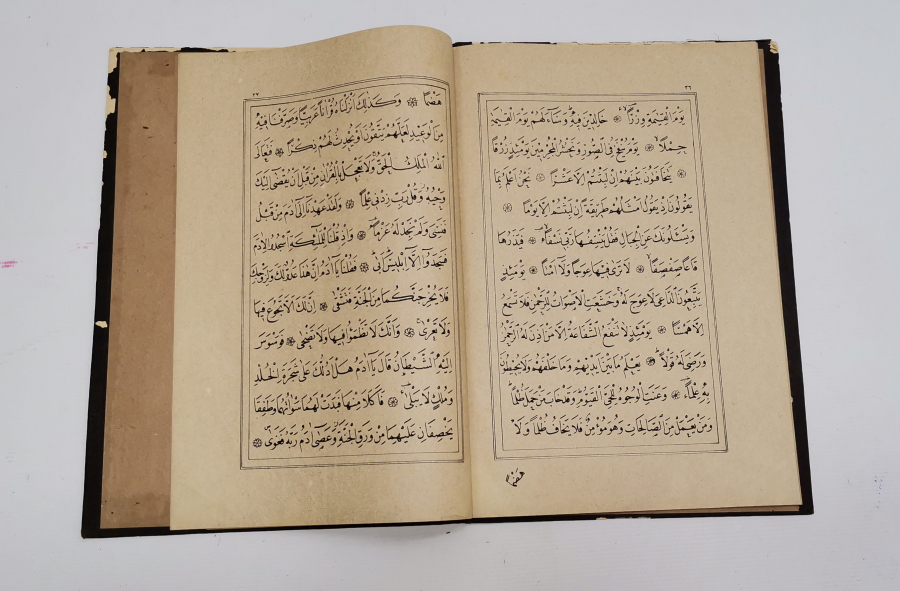 ٢٦
يَوْمَ الْقِيٰمَةِ وِزْرًا ۞ خَالِدِينَ فِيهِ وَسَاءَ لَهُمْ يَوْمَ الْقِيٰمَةِ
حِمْلًا ۞ يَوْمَ يُنْفَخُ فِي الصُّورِ وَنَحْشُرُ الْمُجْرِمِينَ يَوْمَئِذٍ زُرْقًا
۞ يَتَخَافَتُونَ بَيْنَهُمْ اِنْ لَبِثْتُمْ اِلَّا عَشْرًا ۞ نَحْنُ اَعْلَمُ بِمَا
يَقُولُونَ اِذْ يَقُولُ اَمْثَلُهُمْ طَرِيقَةً اِنْ لَبِثْتُمْ اِلَّا يَوْمًا ۞
وَيَسْئَلُونَكَ عَنِ الْجِبَالِ فَقُلْ يَنْسِفُهَا رَبِّي نَسْفًا ۞ فَيَذَرُهَا
قَاعًا صَفْصَفًا ۞ لَا تَرٰى فِيهَا عِوَجًا وَلَا اَمْتًا ۞ يَوْمَئِذٍ
يَتَّبِعُونَ الدَّاعِيَ لَا عِوَجَ لَهُ وَخَشَعَتِ الْاَصْوَاتُ لِلرَّحْمٰنِ فَلَا تَسْمَعُ
اِلَّا هَمْسًا ۞ يَوْمَئِذٍ لَا تَنْفَعُ الشَّفَاعَةُ اِلَّا مَنْ اَذِنَ لَهُ الرَّحْمٰنُ
وَرَضِيَ لَهُ قَوْلًا ۞ يَعْلَمُ مَا بَيْنَ اَيْدِيهِمْ وَمَا خَلْفَهُمْ وَلَا يُحِيطُونَ
بِهِ عِلْمًا ۞ وَعَنَتِ الْوُجُوهُ لِلْحَيِّ الْقَيُّومِ وَقَدْ خَابَ مَنْ حَمَلَ ظُلْمًا
وَمَنْ يَعْمَلْ مِنَ الصَّالِحَاتِ وَهُوَ مُؤْمِنٌ فَلَا يَخَافُ ظُلْمًا وَلَا
هَضْمًا
٢٧
هَضْمًا ۞ وَكَذٰلِكَ اَنْزَلْنَاهُ قُرْاٰنًا عَرَبِيًّا وَصَرَّفْنَا فِيهِ
مِنَ الْوَعِيدِ لَعَلَّهُمْ يَتَّقُونَ اَوْ يُحْدِثُ لَهُمْ ذِكْرًا ۞ فَتَعَالَى
اللّٰهُ الْمَلِكُ الْحَقُّ وَلَا تَعْجَلْ بِالْقُرْاٰنِ مِنْ قَبْلِ اَنْ يُقْضٰى اِلَيْكَ
وَحْيُهُ وَقُلْ رَبِّ زِدْنِي عِلْمًا ۞ وَلَقَدْ عَهِدْنَا اِلٰى اٰدَمَ مِنْ قَبْلُ
فَنَسِيَ وَلَمْ نَجِدْ لَهُ عَزْمًا ۞ وَاِذْ قُلْنَا لِلْمَلٰئِكَةِ اسْجُدُوا لِاٰدَمَ
فَسَجَدُوا اِلَّا اِبْلِيسَ اَبٰى ۞ فَقُلْنَا يَا اٰدَمُ اِنَّ هٰذَا عَدُوٌّ لَكَ وَلِزَوْجِكَ
فَلَا يُخْرِجَنَّكُمَا مِنَ الْجَنَّةِ فَتَشْقٰى ۞ اِنَّ لَكَ اَلَّا تَجُوعَ فِيهَا
وَلَا تَعْرٰى ۞ وَاَنَّكَ لَا تَظْمَؤُا فِيهَا وَلَا تَضْحٰى ۞ فَوَسْوَسَ
اِلَيْهِ الشَّيْطَانُ قَالَ يَا اٰدَمُ هَلْ اَدُلُّكَ عَلٰى شَجَرَةِ الْخُلْدِ
وَمُلْكٍ لَا يَبْلٰى ۞ فَاَكَلَا مِنْهَا فَبَدَتْ لَهُمَا سَوْاٰتُهُمَا وَطَفِقَا
يَخْصِفَانِ عَلَيْهِمَا مِنْ وَرَقِ الْجَنَّةِ وَعَصٰى اٰدَمُ رَبَّهُ فَغَوٰى ۞